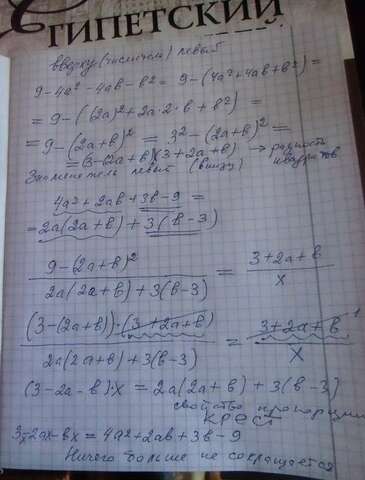 ГИПЕТСКИЙ
вверху (числитель) левый
9-4a²-4ab-b² = 9-(4a²+4ab+b²) =
= 9-((2a)²+2a·2·b+b²) =
= 9-(2a+b)² = 3²-(2a+b)² =
= (3-(2a+b)(3+2a+b) → разность квадратов
Знаменатель левый (внизу)
4a²+2ab+3b-9 =
= 2a(2a+b)+3(b-3)
9-(2a+b)² / 2a(2a+b)+3(b-3) = 3+2a+b / x
(3-(2a+b))·(3+2a+b) / 2a(2a+b)+3(b-3) = 3+2a+b 1 / x
(3-2a-b)·x = 2a(2a+b)+3(b-3)
свойство пропорции
КРЕСТ
3x-2ax-bx = 4a²+2ab+3b-9
Ничего больше не сокращается